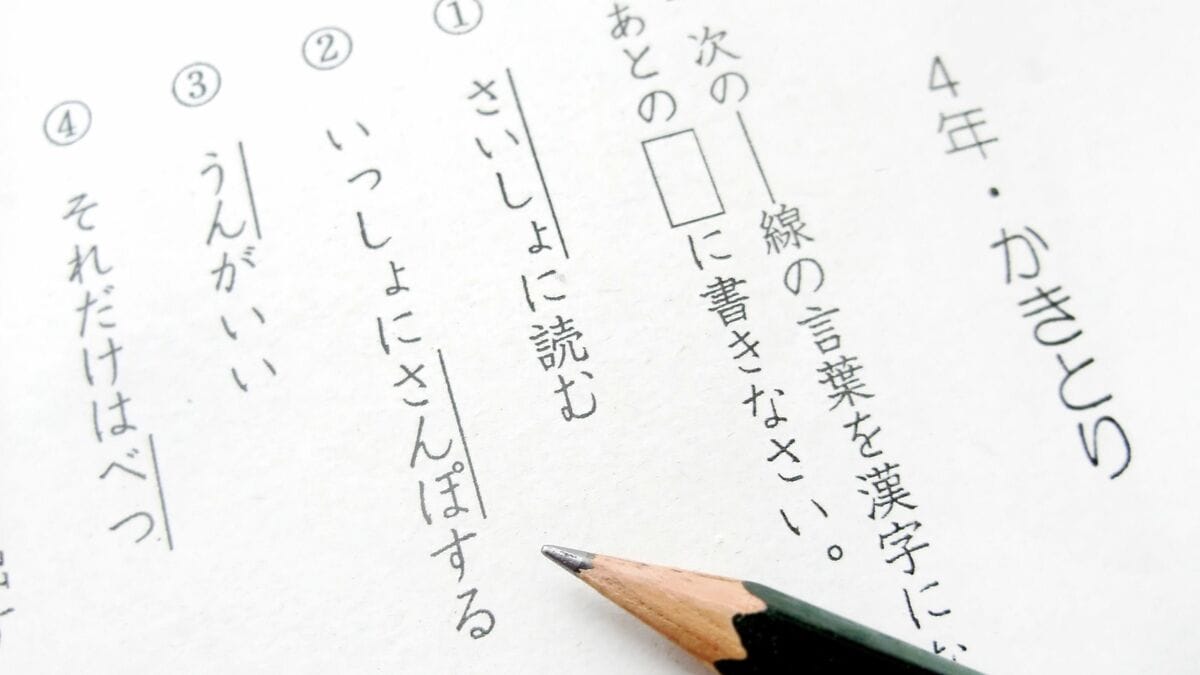 4年・かきとり
次の――線の言葉を漢字に
あとの□に書きなさい。
① さいしょに読む
② いっしょにさんぽする
③ うんがいい
④ それだけはべつ